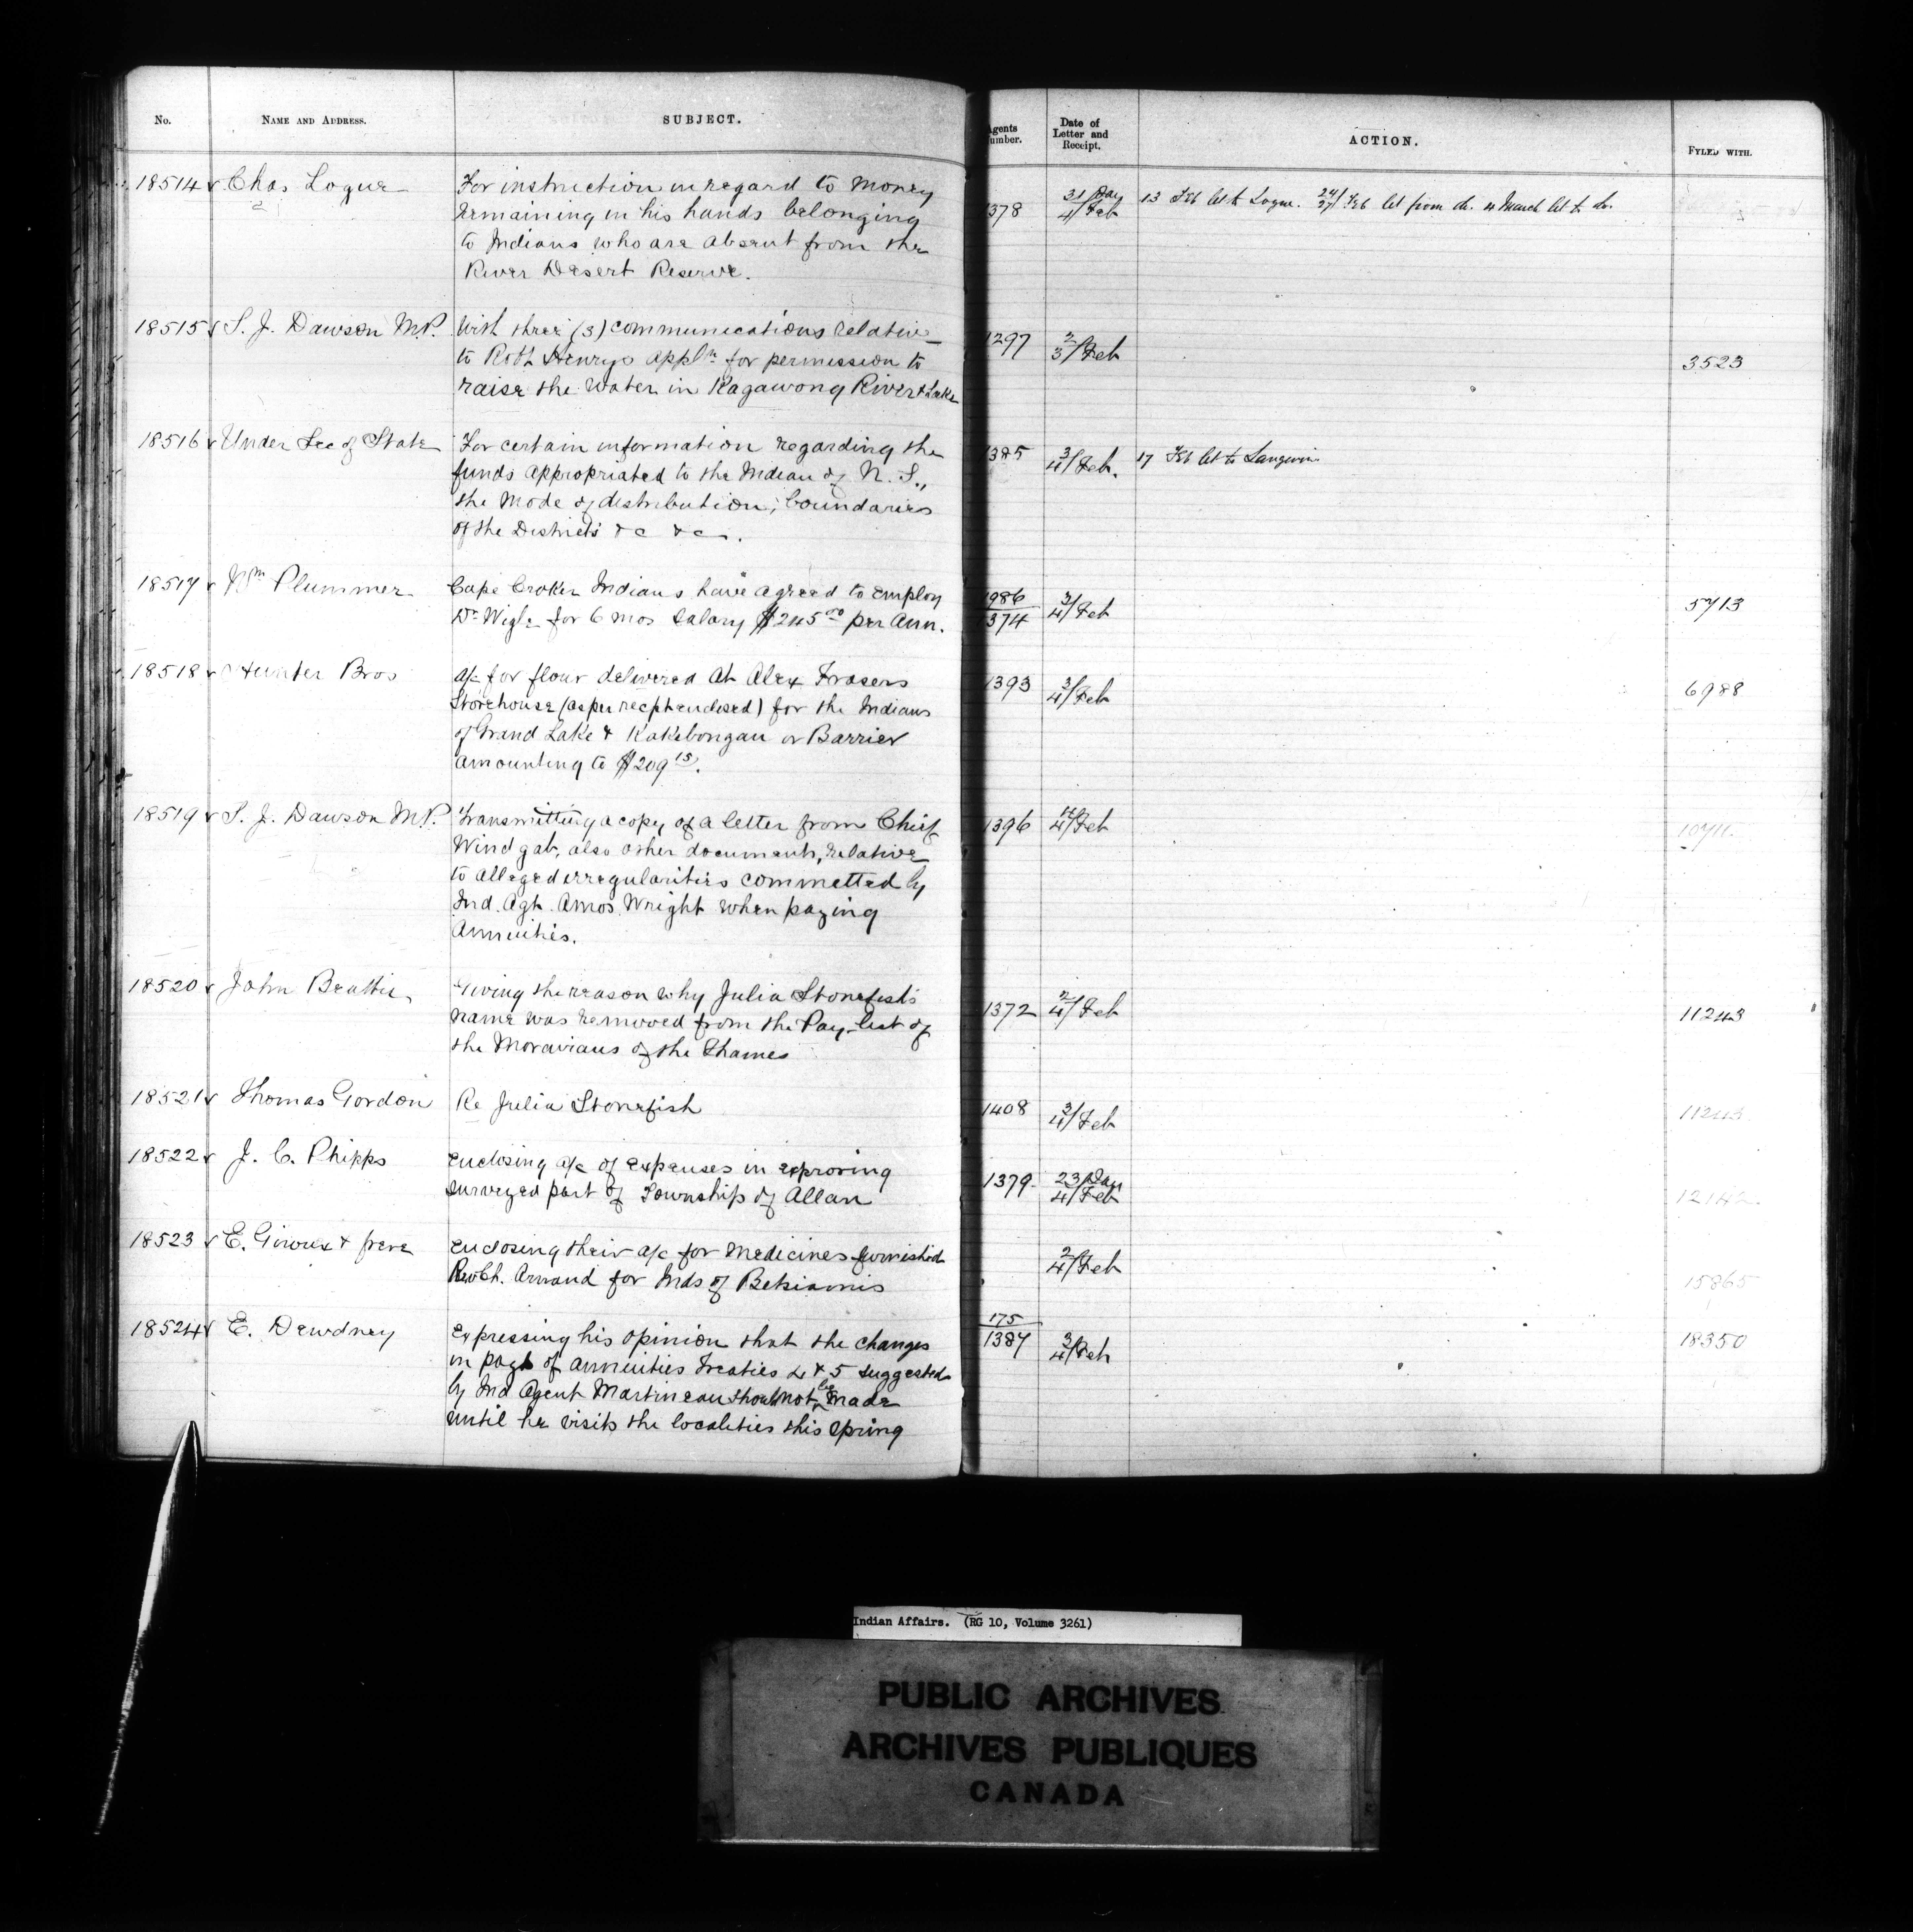 No. NAME AND ADDRESS. SUBJECT. Agents Number. Date of Letter and Receipt. ACTION. FYLED WITH.
18514 Chas Logue For instruction in regard to money 1378 31/Jany 4/Feb 13 Feb let to Logue. 24/27 Feb let from do. 4 March let to do.
remaining in his hands belonging
to Indians who are absent from the
River Desert Reserve.
18515 S. J. Dawson M.P. With three (3) communications relative 1297 2/3/Feb 3523
to Robt Henrys appln for permission to
raise the water in Kagawong River & Lake
18516 Under Sec of State For certain information regarding the 1385 3/4/Feb. 17 Feb let to Langevin
funds appropriated to the Indian of N. S.,
the mode of distribution, boundaries
of the Districts &c &c.
18517 Wm Plummer Cape Croker Indians have agreed to employ 986/1374 3/4/Feb 5713
Dr Wigle for 6 mos salary $245.00 per Ann.
18518 Hunter Bros a/c for flour delivered at Alex Frasers 1393 3/4/Feb 6988
Storehouse (as per recpt enclosed) for the Indians
of Grand Lake & Kakebongau or Barrier
amounting to $209 15.
18519 S. J. Dawson M.P. Transmitting a copy of a letter from Chief 1396 4/Feb 10711
Wind gab, also other documents, relative
to alleged irregularities committed by
Ind. Agt. Amos Wright when paying
Annuities.
18520 John Beattie Giving the reason why Julia Stonefish's 1372 2/4/Feb 11243
name was removed from the Pay-list of
the Moravians of the Thames
18521 Thomas Gordon Re Julia Stonefish 1408 3/4/Feb 11243
18522 J. C. Phipps Enclosing a/c of expenses in exploring 1379 23/Jany 4/Feb 12142
surveyed part of Township of Allan
18523 E. Giroux & frere Enclosing their a/c for medicines furnished 2/4/Feb 15865
Rev Ch. Arnaud for Inds of Betsiamis
18524 E. Dewdney Expressing his opinion that the changes 175/1387 3/4/Feb 18350
in paygt of annuities Treaties 4 & 5 suggested
by Ind Agent Martineau should not be made
until he visits the localities this spring
Indian Affairs. (RG 10, Volume 3261)
PUBLIC ARCHIVES
ARCHIVES PUBLIQUES
CANADA